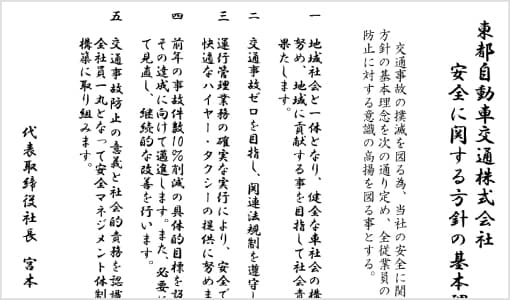 東都自動車交通株式会社
安全に関する方針の基本理
交通事故の撲滅を図る為、当社の安全に関
方針の基本理念を次の通り定め、全従業員の
防止に対する意識の高揚を図る事とする。
一 地域社会と一体となり、健全な車社会の構
努め、地域に貢献する事を目指して社会責
果たします。
二 交通事故ゼロを目指し、関連法規制を遵守し
三 運行管理業務の確実な実行により、安全で
快適なハイヤー・タクシーの提供に努めま
四 前年の事故件数10%削減の具体的目標を設
その達成に向けて邁進します。また、必要に
て見直し、継続的な改善を行います。
五 交通事故防止の意義と社会的責務を認識
全社員一丸となって安全マネジメント体制
構築に取り組みます。
代表取締役社長 宮本